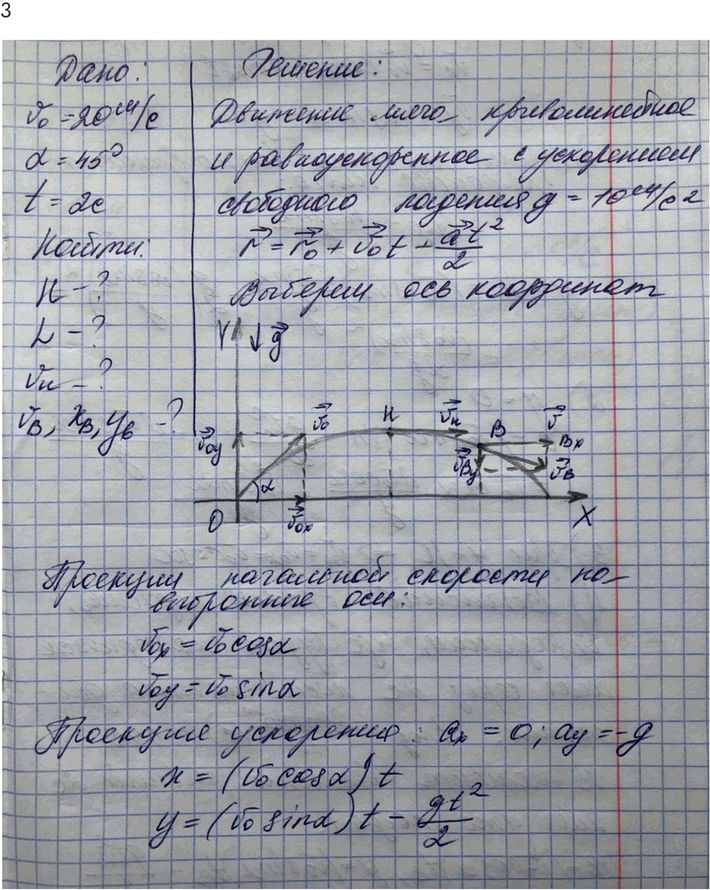 3
Дано:
v₀ = 20 м/с
α = 45°
t = 2с
Найти:
H - ?
L - ?
vн - ?
vB, xB, yB - ?
Решение:
Движение мяча криволинейное
и равноускоренное с ускорением
свободного падения g = 10 м/с²
r⃗ = r⃗₀ + v⃗₀t + a⃗t²/2
Выберем ось координат
Y g⃗
v⃗₀y v⃗₀ H v⃗н B v⃗Bx
v⃗By v⃗B
α
O v⃗₀x X
Проекции начальной скорости на
выбранные оси:
v₀x = v₀cosα
v₀y = v₀sinα
Проекция ускорения: ax = 0; ay = -g
x = (v₀cosα)t
y = (v₀sinα)t - gt²/2